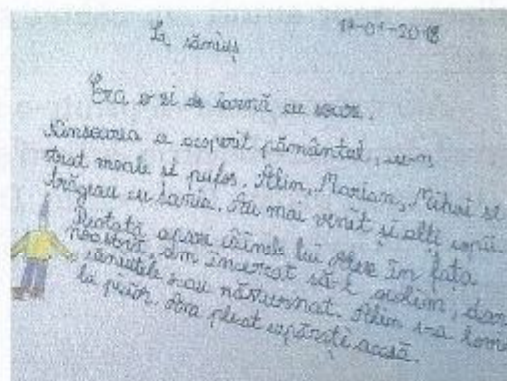 La săniuș 17-01-2018
Era o zi de iarnă cu soare.
Ninsoarea a acoperit pământul, cu-n
strat moale și pufos. Alin, Marian, Mihai se
trăgeau cu sania. Au mai venit și alți copii.
Deotată apare câinele lui Alex în fața
noastră am încercat să-l ocolim, dar
săniuțele s-au răsturnat. Alin s-a
la picior. Am plecat supărați acasă.